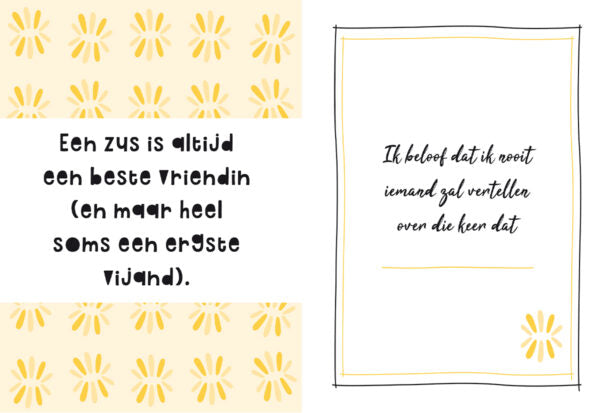 Een zus is altijd
een beste vriendin
(en maar heel
soms een ergste
vijand).
Ik beloof dat ik nooit
iemand zal vertellen
over die keer dat